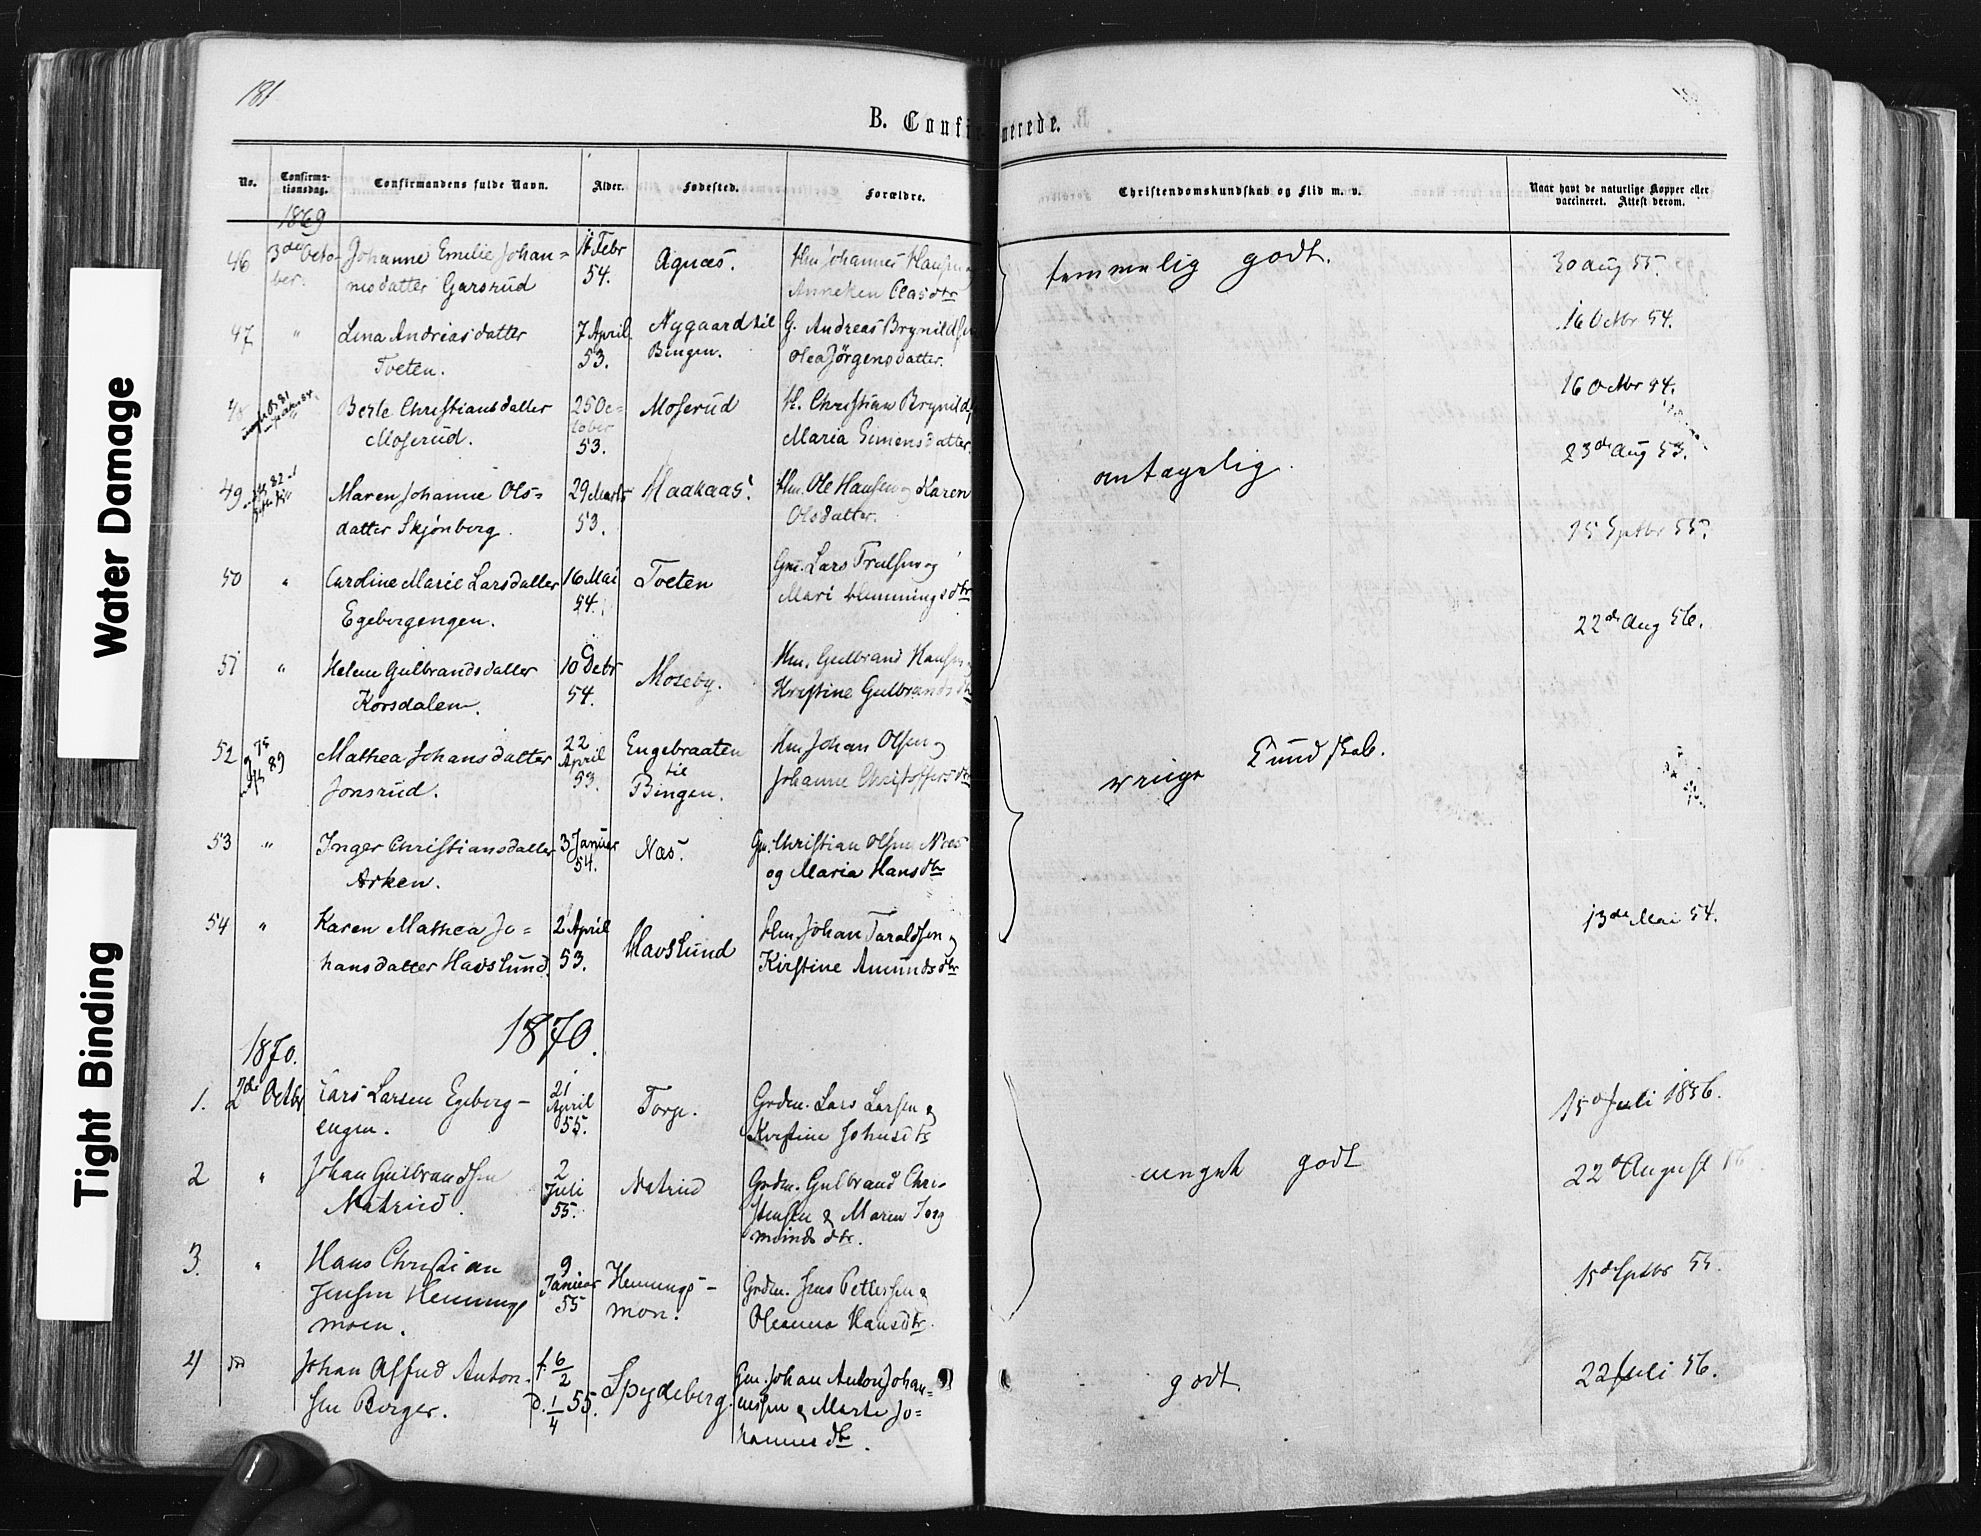 181
B. Confirmerede.
No. Confirmationsdag. Confirmandens fulde Navn. Alder. Fødested. Forældre. Christendomskundskab og Flid m. v. Naar havt de naturlige Kopper eller vaccineret. Attest derom.
1869
46 3die October. Johanne Emilie Johan= 17 Febr Agnæs. Hm Johannes Hansen
nesdatter Garsrud 54. Anneken Olasdtr
temmelig godt. 30 Aug 55.
47 " Lina Andreasdatter 7 April Nygaard til G. Andreas Brynildsen
Tveten. 53. Bingen. Olea Jørgensdatter.
16 Octbr 54.
Berte Christiansdatter 25 Oc= Moserud H. Christian Brynilds
Moserud. tober 53. Maria Simensdatter
16 Octbr 54.
49 Maren Johanne Ols= 29 Marts Haakaas. Hm. Ole Hansen og Karen
datter Skjønberg. 53. Olsdatter.
antagelig. 23de Aug 53.
50 " Caroline Marie Larsdatter 16 Mai Tveten Gm. Lars Trulsen og
Egebergengen. 54. Mari Hemmingsdtr
15 Septbr 55.
51 " Helene Gulbrandsdatter 10 Octbr Moseby. Hm. Gulbrand Hansen
Korsdalen. 54. Kristine Gulbrandsdtr
22de Aug 56.
52 Mathea Johansdatter 22 April Engebraaten Hm Johan Olsen og
Jonsrud. 53. til Bingen. Johanne Christoffersdtr
ringe Kundskab.
53 " Inger Christiansdatter 3 Januar Næs. Gm. Christian Olsen Næs
Arken. 54. og Maria Hansdtr
54 " Karen Mathea Jo= 2 April Havslund Hm Johan Taraldsen og
hansdatter Havslund 53. Kirstine Amundsdtr
13de Mai 54.
1870.
1870.
1. 2de Octbr Lars Larsen Egeberg- 21 April Torp. Grdm. Lars Larsen &
engen. 55. Kristine Johnsdtr
15de Juli 1856.
2 " Johan Gulbrandsen 2 Juli Natrud Grdm. Gulbrand Chri-
Natrud. 55. stensen & Maren Torg
mundsdtr.
meget godt 22de August
3. " Hans Christian 9 Januar Hemmings- Grdm. Jens Pettersen &
Jensen Hemmings 55 moen. Oleanna Hansdtr.
moen.
15de Septbr 55.
4 Johan Alfred Anton- f. 6/2 Spydeberg. Gm. Johan Anton Johan=
sen Borger. d. 1/4 55. nessen & Marte Jo=
hannesdtr.
godt. 22 Juli 56.
Water Damage
Tight Binding